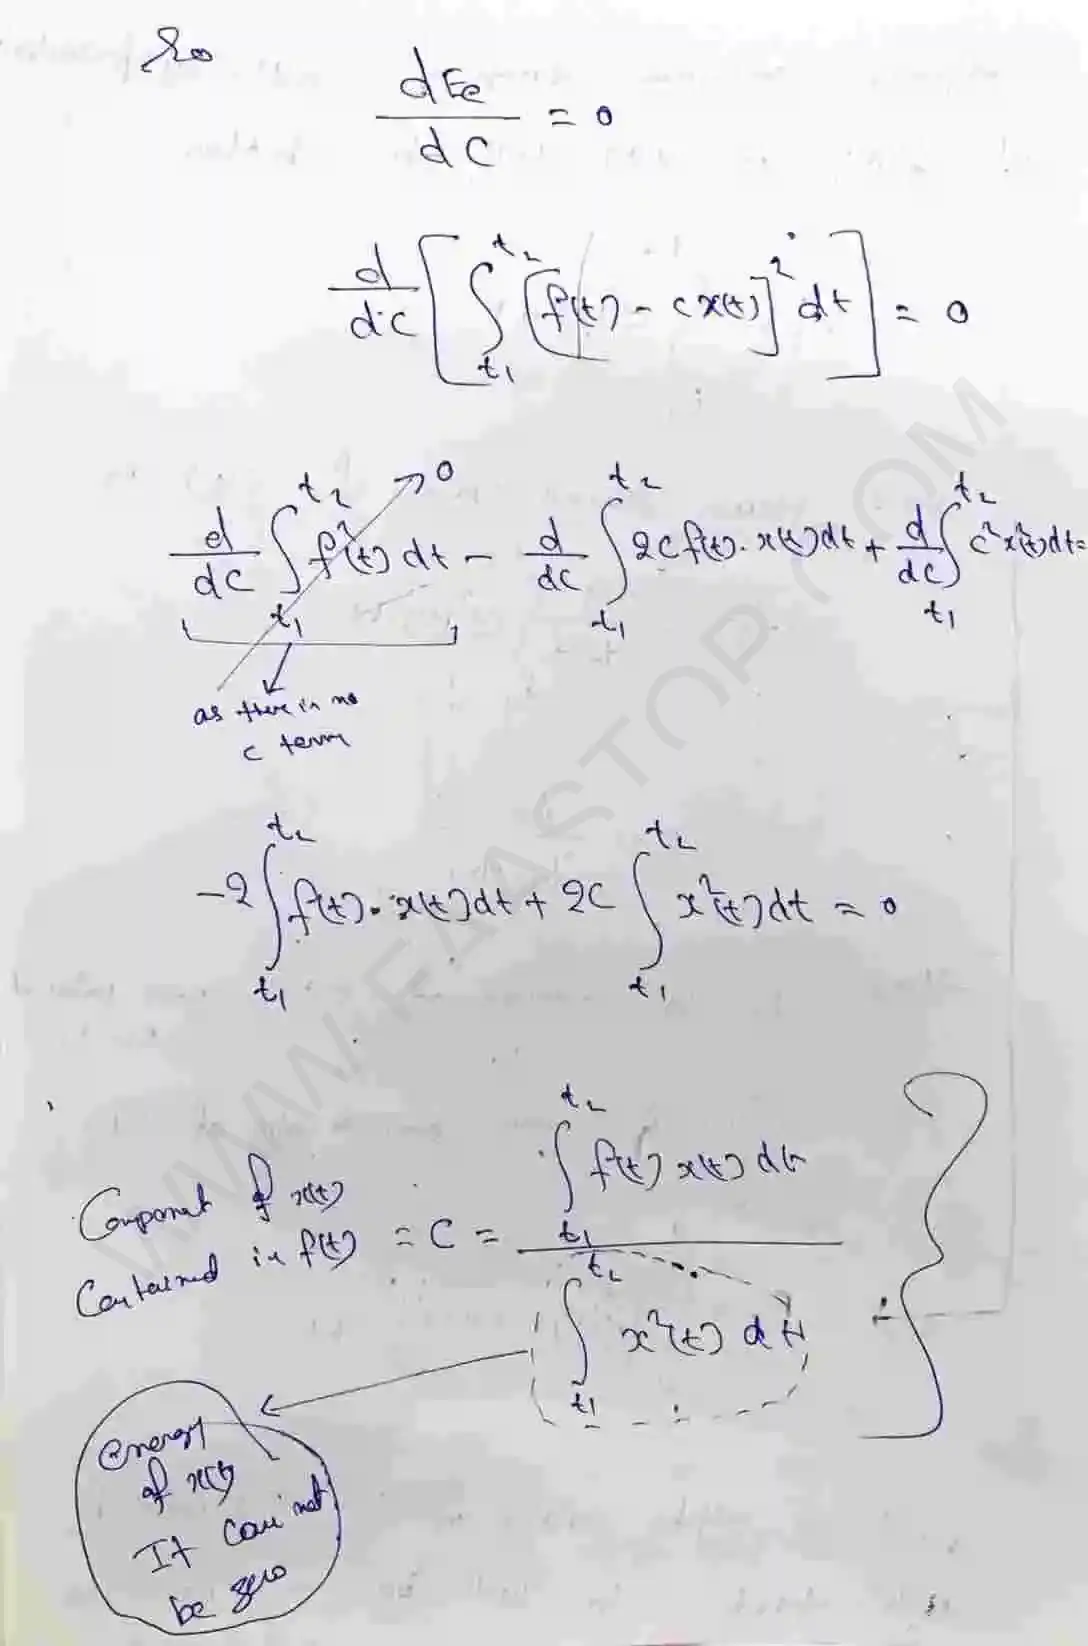 So
dEe/dC = 0
d/dC [ ∫_{t1}^{t2} [f(t) - cx(t)]² dt ] = 0
d/dC ∫_{t1}^{t2} f²(t) dt → 0 - d/dC ∫_{t1}^{t2} 2C f(t) · x(t) dt + d/dC ∫_{t1}^{t2} c² x²(t) dt =
as there is no
c term
-2 ∫_{t1}^{t2} f(t) · x(t) dt + 2C ∫_{t1}^{t2} x²(t) dt = 0
Component of x(t)
Contained in f(t) = C = ∫_{t1}^{t2} f(t) x(t) dt / ∫_{t1}^{t2} x²(t) dt
energy
of x(t)
It can not
be zero
WWW.FAASTOP.COM